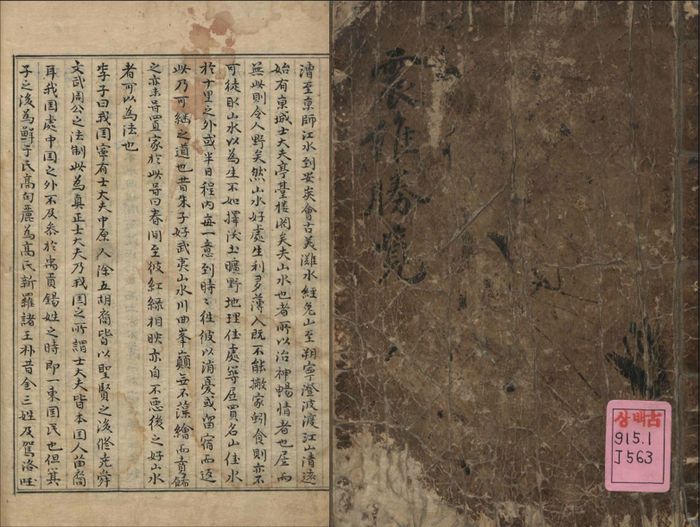 漕至京師江水到安炭會古美灘水經兔山至朔寧澄波渡江山清遠
始有東城士大夫亭臺樓閣矣夫山水也者所以冶神暢情者也居而
無此則令人野矣然山水好處生利多薄人既不能搬家蚓食則亦不
可徒取山水以為生不如擇沃土曠野地理佳處築居買名山佳水
於十里之外或半日程內每一意到時〻往彼以消憂或留宿而返
此乃可継之道也昔朱子好武夷山水川曲峯巔無不藻繪而賁餙
之亦未嘗置家於此嘗曰春間至彼紅綠相映亦自不惡後之好山水
者可以為法也
李子曰我国寧有士大夫中原人除五胡裔皆以聖賢之後修堯舜
文武周公之法制此為真正士大夫乃我国之所謂士大夫皆本国人苗裔
耳我国處中国之外不及參於禹貢錫姓之時即一東国民也但箕
子之後為鮮于氏高句麗為高氏新羅諸王朴昔金三姓及駕洛
震維勝覽
상백古
915.1
J563